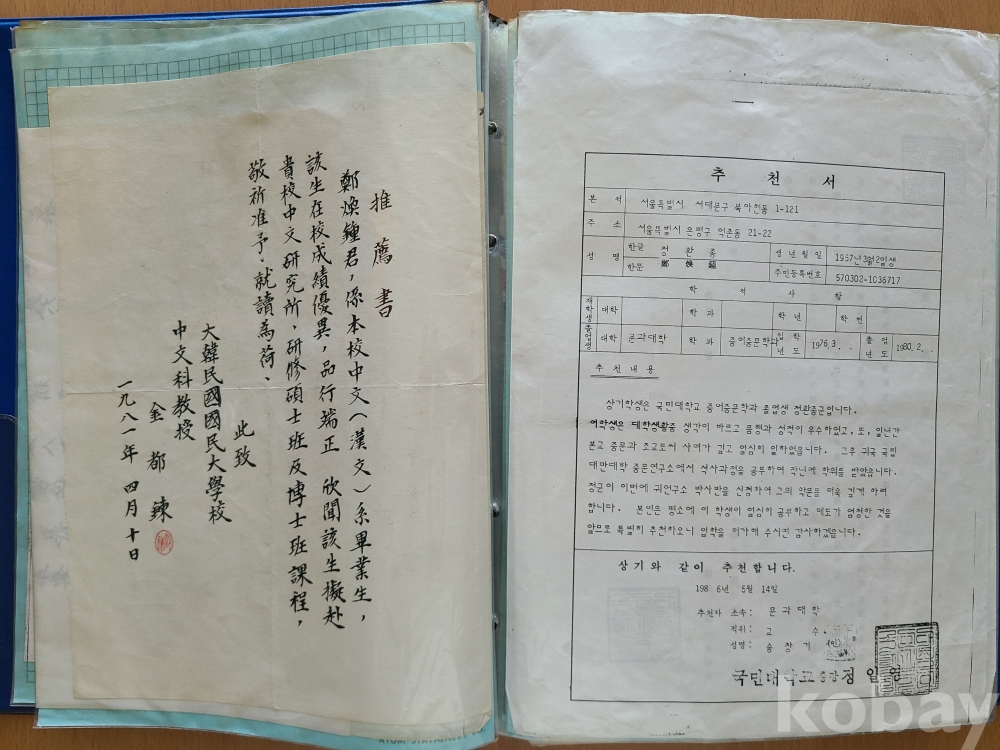 推薦書
鄭煥鍾君,係本校中文(漢文)系畢業生,
該生在校成績優異,品行端正 欣聞該生擬赴
貴校中文研究所,研修碩士班及博士班課程,
敬祈准予就讀為荷、
此致
大韓民國國民大學校
中文科教授
金都鍊
一九八一年 四月十日
추 천 서
본 적 서울특별시 서대문구 북아현동 1-121
주 소 서울특별시 은평구 역촌동 21-22
성 명 한글 정 환 종 생 년 월 일 1957년3월2일생
한문 주민등록번호 570302-1036717
학 적 사 항
재학생 대학 학 과 학 년 학 번
졸업생 대학 문과대학 학 과 중어중문학과 입 학 년 도 1976.3. . 졸 업 년 도 1980.2. .
추 천 내 용
상기학생은 국민대학교 중어중문학과 졸업생 정환종군입니다.
이학생은 대학생활중 생각이 바르고 품행과 성적이 우수하였고, 또, 일년간
본교 중문과 조교로써 사려가 깊고 열심히 일하였읍니다. 그후 귀국 국립
대만대학 중문연구소에서 석사과정을 공부하여 작년에 학위를 받았읍니다.
정군이 이번에 귀연구소 박사반을 신청하여 그의 학문을 더욱 깊게 하려
합니다. 본인은 평소에 이 학생이 열심히 공부하고 태도가 엄정한 것을
알므로 특별히 추천하오니 입학을 허가해 주시면 감사하겠읍니다.
상기와 같이 추천합니다.
198 6년 5월 14일
추천자 소속: 문과대학
직위: 교 수
성명: 송 창 기 (인)
국민대학교 총장 정 일 영
kobay